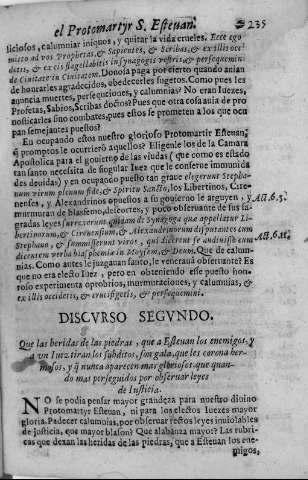 el Protomartyr S. Esteuan. 235
liciosos, calumniar iniquos, y quitar la vida crueles. Ecce ego
mitto ad vos Prophetas, & sapientes, & Scribas, & ex illis occi
detis, & ex eis flagellabitis in synagogis vestris, & persequemini
de Ciuitate in Ciuitatem. Donosa paga por cierto quando auian
de honrarles agradecidos, obedecerles sugetos. Como pues les
anuncia muertes, persequuciones, y calumnias? No eran Iuezes,
Profetas, Sabios, Scribas doctos? Pues que otra cosa auia de pro
nosticarles sino combates, pues estos se prometen a los que ocu
pan semejantes puestos?
En ocupando estos nuestro glorioso Protomartir Esteuan,
q̃ promptos le ocurrierō aquellos? Eligenle los de la Camara
Apostolica para el gouierno de las viudas (que como es estado
tan santo necessita de singular Iuez que le conserue inmunida
des deuidas) y en ocupando puesto tan graue elegerunt Stepha-
num virum plenum fide, & Spiritu Sancto, los Libertinos, Cire-
nenses, y Alexandrinos opuestos a su gouierno le arguyen, y
murmuran de blasfemo, detestores, y poco obseruante de sus sa-
gradas leyes surrexerunt quidam de Synagoga que appellatur Li-
bertinorum, & Cirenensium, & Alexandrinorum disputantes cum
Stephano, & summisserunt viros, qui dicerent se audiuisse eum
dicentem verba blasphemia in Moysem, & Deum. Que de calum-
nias. Como antes le juzgauan santo, le venerauā obseruante? Es
que no era electo Iuez, pero en obteniendo esse puesto hon-
roso experimenta oprobrios, murmuraciones, y calumnias, &
ex illis occidetis, & crucifigetis, & persequemini.
Act. 6. 5.
Act. 6. 11.
DISCVRSO SEGVNDO.
Que las heridas de las piedras, que a Esteuan los enemigos, y
a vn Iuez tiran los subditos, son gala, que les corona her-
mosos, y q̃ nunca aparecen mas gloriosos que quan-
do mas perseguidos por obseruar leyes
de Iusticia.
NO se podia pensar mayor grandeza para nuestro diuino
Protomartyr Esteuan, ni para los electos Iuezes mayor
gloria. Padecer calumnias, por obseruar rectos leyes inuiolables
de Justicia, que mayor blason? Que alabanza mayor? Las rubri-
cas que dexan las heridas de las piedras, que a Esteuan los ene-
migos,